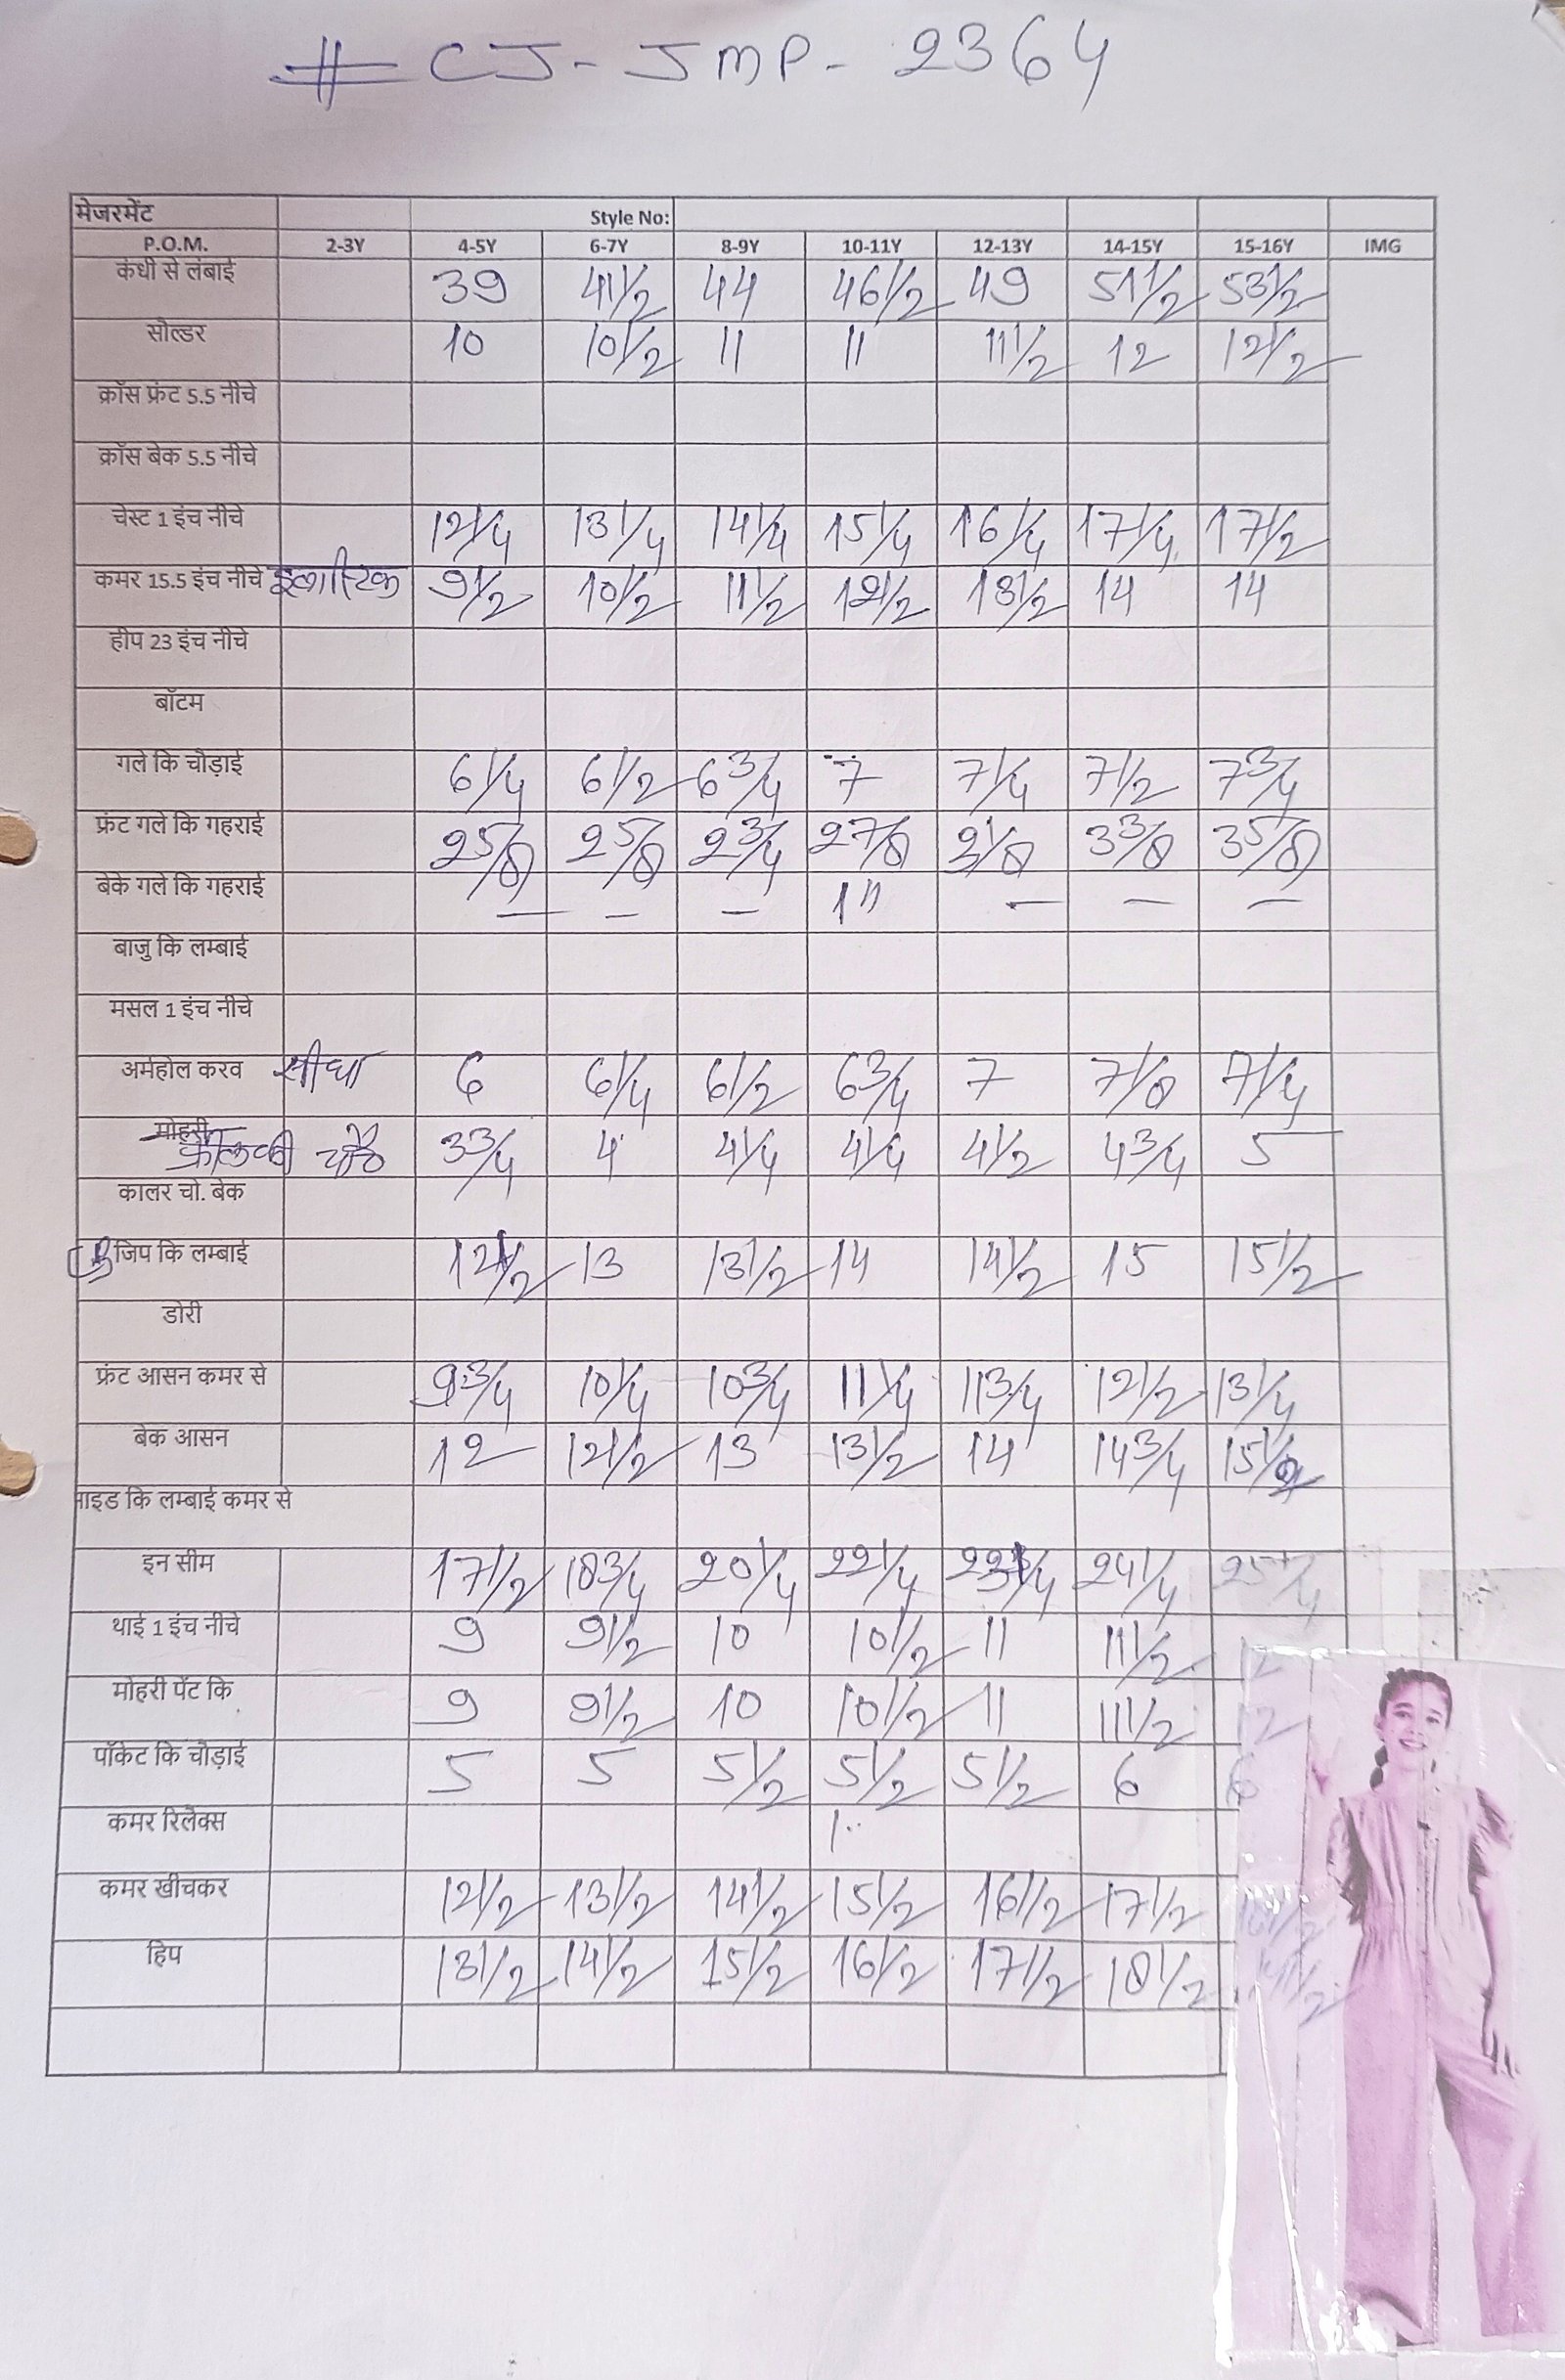 # CJ - JMP - 2364
मेजरमेंट Style No:
P.O.M. 2-3Y 4-5Y 6-7Y 8-9Y 10-11Y 12-13Y 14-15Y 15-16Y IMG
कंधी से लंबाई 39 41 1/2 44 46 1/2 49 51 1/2 53 1/2
सोल्डर 10 10 1/2 11 11 11 1/2 12 12 1/2
क्रॉस फ्रंट 5.5 नीचे
क्रॉस बेक 5.5 नीचे
चेस्ट 1 इंच नीचे 12 1/4 13 1/4 14 1/4 15 1/4 16 1/4 17 1/4 17 1/2
कमर 15.5 इंच नीचे इलास्टिक 9 1/2 10 1/2 11 1/2 12 1/2 13 1/2 14 14
हीप 23 इंच नीचे
बॉटम
गले कि चौड़ाई 6 1/4 6 1/2 6 3/4 7 7 1/4 7 1/2 7 3/4
फ्रंट गले कि गहराई 2 5/8 2 5/8 2 3/4 2 7/8 3 1/8 3 3/8 3 5/8
बेके गले कि गहराई — — — 1" — — —
बाजु कि लम्बाई
मसल 1 इंच नीचे
अर्महोल करव सीधा 6 6 1/4 6 1/2 6 3/4 7 7 1/8 7 1/4
मोहरी
3 3/4 4 4 1/4 4 1/4 4 1/2 4 3/4 5
कालर चो. बेक
जिप कि लम्बाई 12 1/2 13 13 1/2 14 14 1/2 15 15 1/2
डोरी
फ्रंट आसन कमर से 9 3/4 10 1/4 10 3/4 11 1/4 11 3/4 12 1/2 13 1/4
बेक आसन 12 12 1/2 13 13 1/2 14 14 3/4 15 1/2
कि लम्बाई कमर से
इन सीम 17 1/2 18 3/4 20 1/4 22 1/4 24 1/4
थाई 1 इंच नीचे 9 9 1/2 10 10 1/2 11 11 1/2 12
मोहरी पेंट कि 9 9 1/2 10 10 1/2 11 11 1/2 12
पॉकेट कि चौड़ाई 5 5 5 1/2 5 1/2 5 1/2 6 6
कमर रिलेक्स
कमर खीचकर 12 1/2 13 1/2 14 1/2 15 1/2 16 1/2 17 1/2
हिप 13 1/2 14 1/2 15 1/2 16 1/2 17 1/2 18 1/2